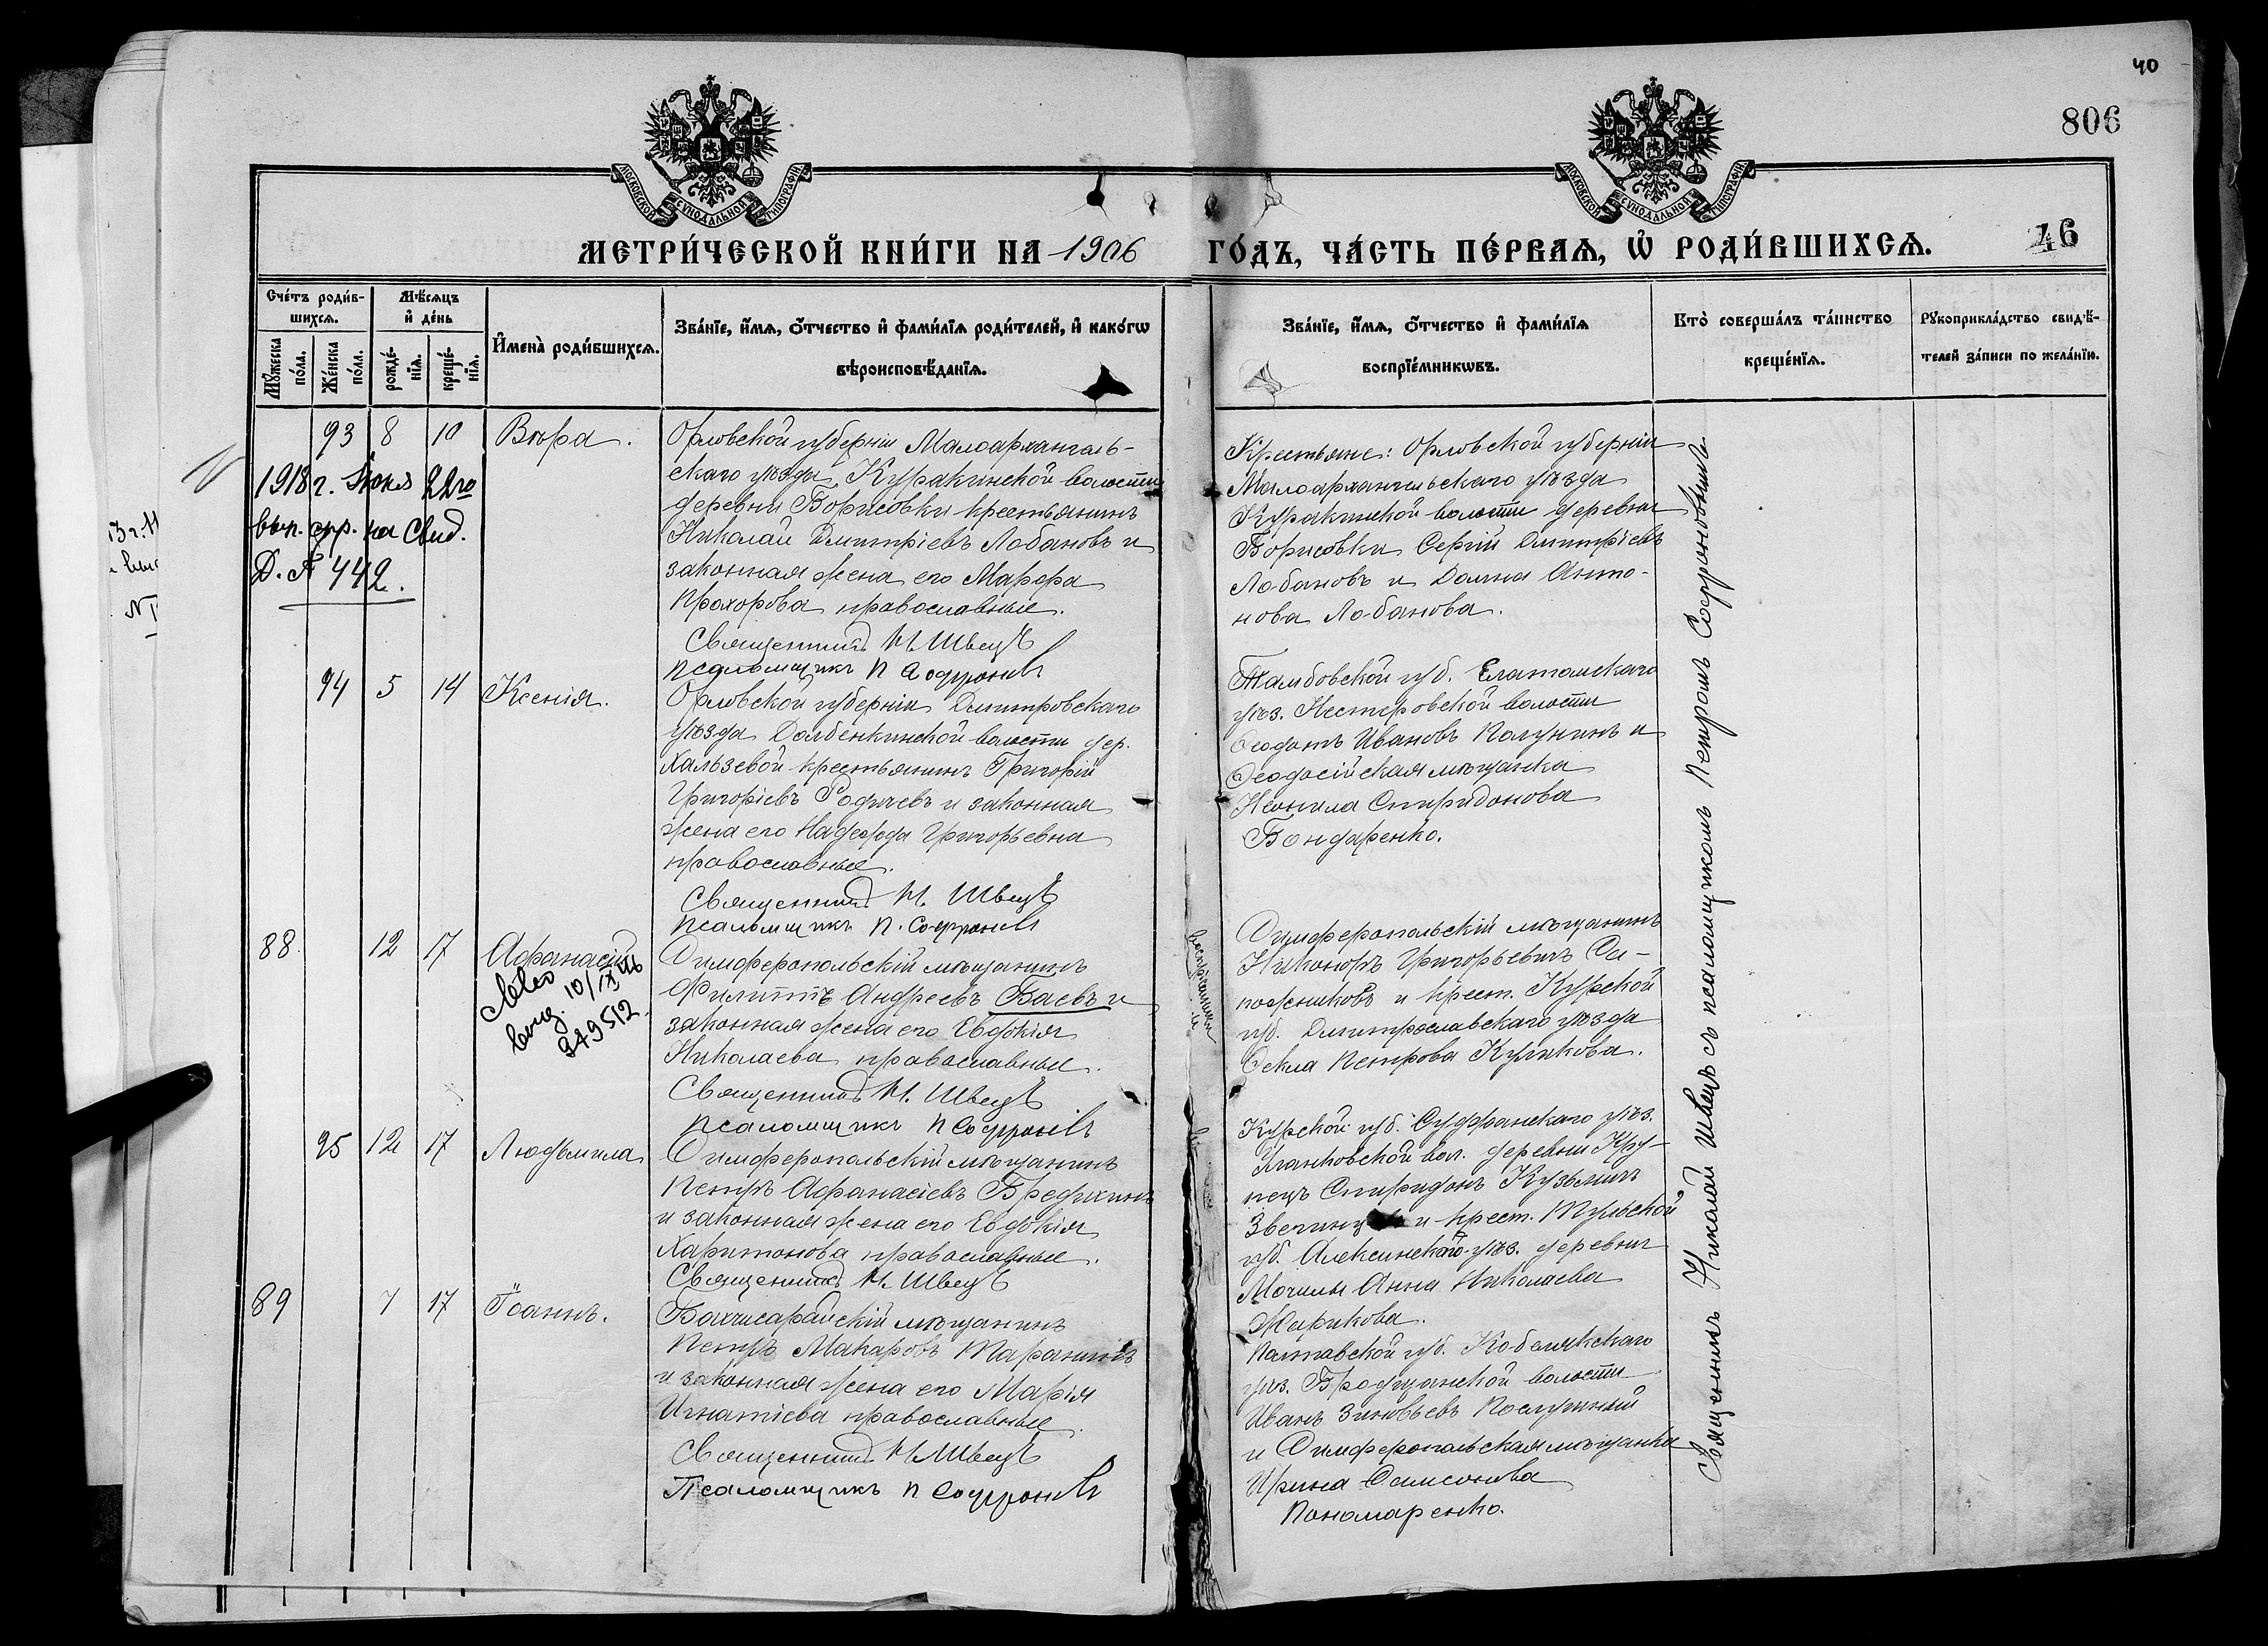 40
806
МОСКОВСКОЙ СѴНОДАЛЬНОЙ ТИПОГРАФІИ
МОСКОВСКОЙ СѴНОДАЛЬНОЙ ТИПОГРАФІИ
МЕТРИ́ЧЕСКОЙ КНИ́ГИ НА 1906 ГО́ДЪ, ЧА́СТЬ ПЕ́РВАѦ, Ѡ҆ РОДИ́ВШИХСѦ. 46
Сче́тъ роди́в-
шихсѧ.
Мѣ́сѧцъ
и҆ де́нь
Мꙋ́жеска
по́ла.
Же́нска
по́ла.
рожде́-
нїѧ.
креще́-
нїѧ.
И҆мена̀ роди́вшихсѧ.
Зва́нїе, и҆́мѧ, ѻ҆́тчество и҆ фами́лїѧ роди́телей, и҆ како́гѡ
вѣроисповѣ́данїѧ.
Зва́нїе, и҆́мѧ, ѻ҆́тчество и҆ фами́лїѧ
воспрїе́мникѡвъ.
Кто̀ соверша́лъ та́инство
креще́нїѧ.
Рꙋкоприкла́дство свидѣ́-
телей за́писи по жела́нїю.
93 8 10 Вѣра.
Орловской губерніи Малоархангель-
скаго уѣзда, Куракинской волости
деревни Борисовки крестьянинъ
Николай Димитріевъ Лобановъ и
законная жена его Марфа
Прохорова православные.
Священникъ Н. Швецъ
псаломщикъ П Софроновъ
Крестьяне: Орловской губерніи
Малоархангельскаго уѣзда
Куракинской волости деревни
Борисовки Сергій Димитріевъ
Лобановъ и Домна Анто-
нова Лобанова.
1918 г. Іюня 22го
выд. на Свид.
442.
94 5 14 Ксенія.
Орловской губерніи Димитровскаго
уѣзда Долбенкинской волости дер.
Хальзевой крестьянинъ Григорій
Григоріевъ Родичевъ и законная
жена его Надежда Григорьевна
православные.
Священникъ Н. Швецъ
псаломщикъ П. Софроновъ
Тамбовской губ. Елатомскаго
уѣз. Нестеровской волости
Ѳеодотъ Ивановъ Полунинъ и
Ѳеодосійская мѣщанка
Неонила Спиридонова
Бондаренко.
88. 12 17 Афанасій
выд. 10/IX
349512.
Симферопольскій мѣщанинъ
Филиппъ Андреевъ Баевъ и
законная жена его Евдокія
Николаева православные.
Священникъ Н. Швецъ
псаломщикъ П Софроновъ
Симферопольскій мѣщанинъ
Никоноръ Григорьевичъ Са-
пожниковъ и крест. Курской
губ. Димитрославскаго уѣзда
Ѳекла Петрова Куликова.
95 12 17 Людьмила
Симферопольскій мѣщанинъ
Петръ Афанасіевъ Бредихинъ
и законная жена его Евдокія
Харитонова православные.
Священникъ Н. Швецъ
Курской губ. Суджанскаго уѣз.
Уланковской вол. деревни Кру-
пецъ Спиридонъ Кузьминъ
и крест. Тульской
губ. Алексинскаго уѣз. деревни
Могилы Анна Николаева
Жарикова.
89 7 17 Іоаннъ.
Бахчисарайскій мѣщанинъ
Петръ Макаровъ Таранинъ
и законная жена его Марія
Игнатіева православные.
Священникъ Н. Швецъ
Псаломщикъ П Софроновъ
Полтавской губ. Кобелякскаго
уѣз. Бродщанской волости
Иванъ Зиновьевъ
и Симферопольская мѣщанка
Ирина Самсонова
Пономаренко.
Священникъ Николай Швецъ съ псаломщикомъ Петромъ Софроновымъ